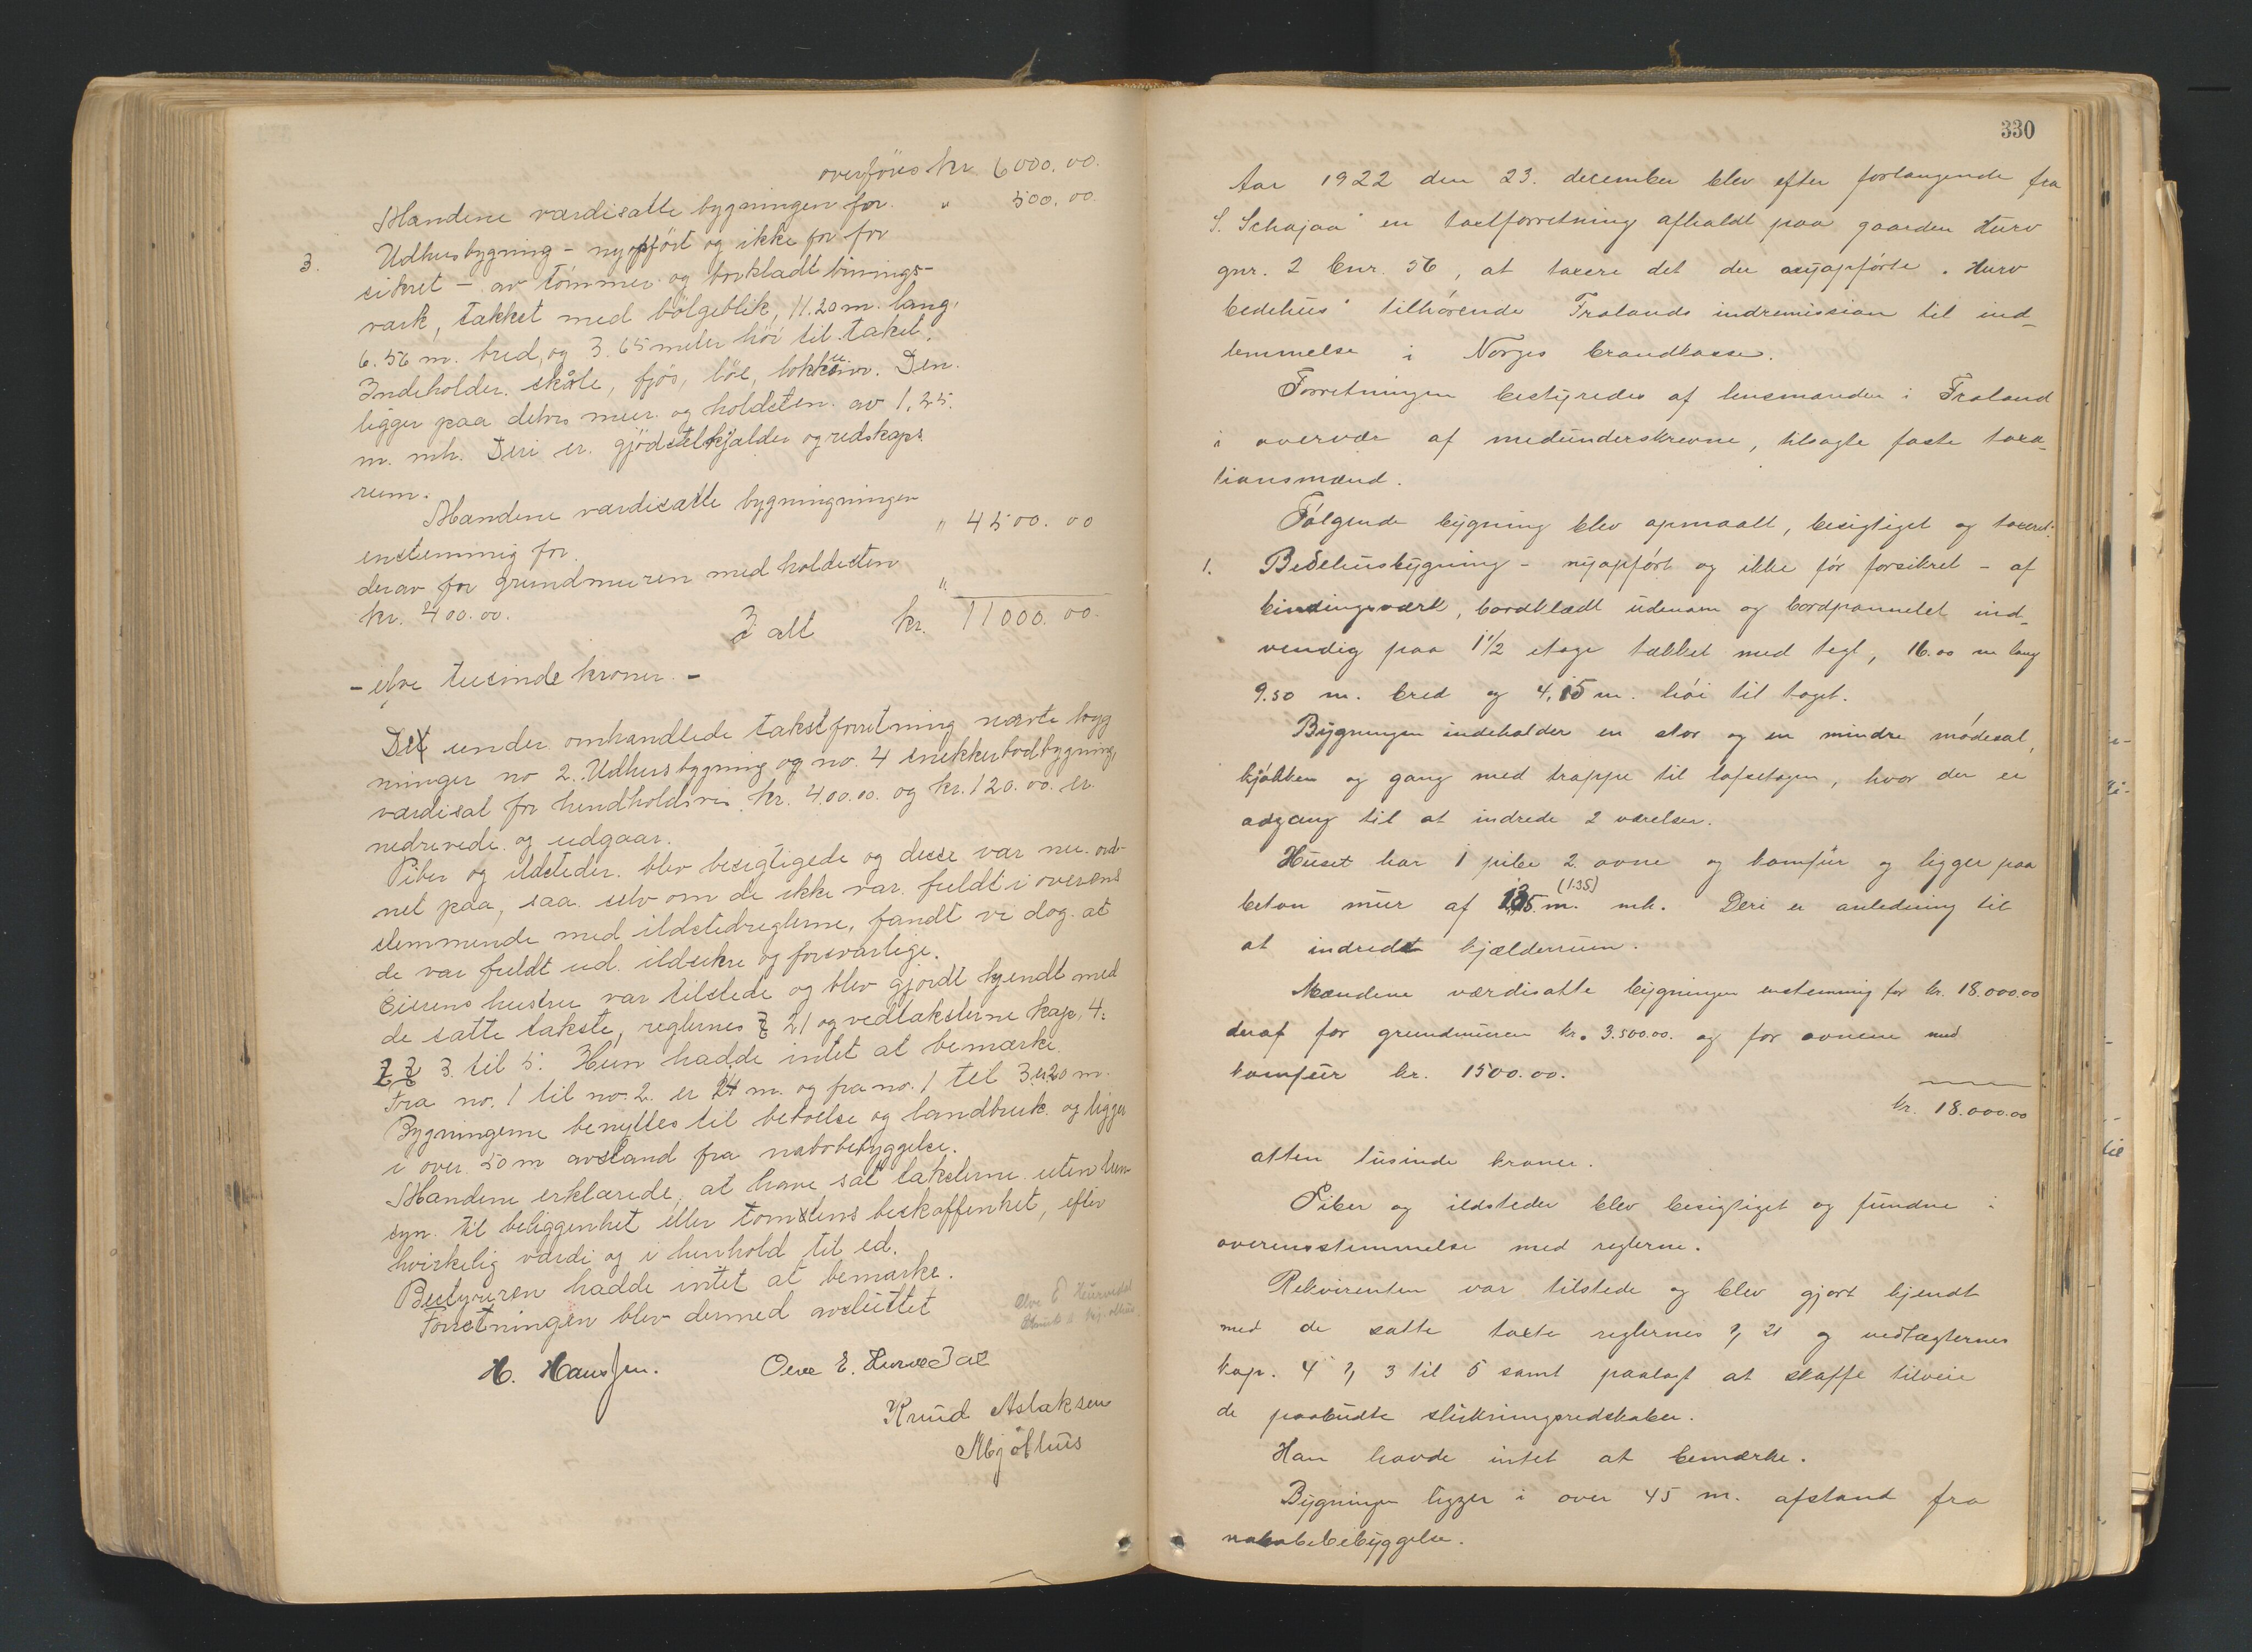 overføres kr 6000.00.
Mændene værdisatte bygningen for. " 500.00
3. Udhusbygning - nyopført og ikke før for
sikret - av tømmer og bordklædt bindings-
værk, tækket med bølgeblik, 11.20 m. lang,
6.56 m. bred, og 3.65 meter høi til taket.
Indeholder. skåle, fjøs, løe, Den.
ligger paa delvis mur og holdsten. av 1,25.
m. mh. Deri er. gjødselkjælder og redskaps
rum.
Mændene værdisatte bygningningen
enstemmig for. " 4500.00
derav for grundmuren med holdesten
kr. 400.00. "
I alt kr. 11000.00.
- elve tusinde kroner. -
De under omhandlede takstforretning nævnte bygg
ninger no 2. Udhusbygning og no. 4 snekkerbodbygning,
værdisat for hendholdsvis kr. 400.00. og kr. 120.00. er.
nedrevede og udgaar.
Piber og ildsteder. blev besigtigede og disse var nu. ord-
net paa, saa selv om de ikke var. fuldt i overens
stemmende med ildstedreglerne, fandt vi dog at
de var fuldt ud. ildsikre og forsvarlige.
Eierens hustru var tilstede og blev gjordt kjendt med
de satte takste, reglernes § 21 og vedtakterne kap. 4.
§§ 3. til 5. Hun hadde intet at bemærke.
Fra no. 1 til no. 2. er 24 m. og fra no. 1 til 3 er 20 m.
Bygningerne benyttes til beboelse og landbruk. og ligger
i over 50 m avstand fra nabobebyggelse.
Mændene erklærede, at have sat taksterne uten hen
syn. til beliggenhet eller tomtens beskaffenhet, efter
hvirkelig værdi og i henhold til ed.
Bestyreren hadde intet at bemærke.
Forretningen blev dermed avsluttet
H. Hanssen. Olve E. Hurvedal
Knud Aslaksen
Mjølhus
330
Aar 1922 den 23. december blev efter forlangende fra
S. Schajaa en taxtforretning afholdt paa gaarden Hurv
gnr. 2 bnr. 56, at taxere det der nyopførte "Hurv
bedehus" tilhørende Frolands indremission til ind-
lemmelse i Norges brandkasse.
Forretningen bestyredes af lensmanden i Froland
i overvær af medunderskrevne, tilsagte faste taxa-
tionsmænd.
Følgende bygning blev opmaalt, besigtiget og taxeret:
1. Bedehusbygning - nyopført og ikke før forsikret - af
bindingsværk, bordklædt udenom og bordpannelet ind-
vendig paa 1 1/2 etage tækket med tegl, 16.00 m lang
9.50 m. bred og 4.15 m. høi til taget.
Bygningen indeholder en stor og en mindre mødesal,
kjøkken og gang med trappe til loftsetagen, hvor der er
adgang til at indrede 2 værelser.
Huset har 1 pibe 2 ovne og komfür og ligger paa
beton mur af 1,35 (1.35) m. mh. Deri er anledning til
at indrede kjælderrum.
Mændene værdisatte bygningen enstemmig for kr. 18.000.00
deraf for grundmuren kr. 3.500.00. og for ovnene med
komfür kr. 1500.00.
kr. 18.000.00
atten tusinde kroner.
Piber og ildsteder blev besigtiget og fundne i
overensstemmelse med reglerne.
Rekvirenten var tilstede og blev gjort kjendt
med de satte taxte reglernes § 21 og vedtægternes
kap. 4 § 3 til 5 samt paalagt at skaffe tilveie
de paabudte slukningsredskaber.
Han havde intet at bemærke.
Bygningen ligger i over 45 m. afstand fra
nabobebyggelse.